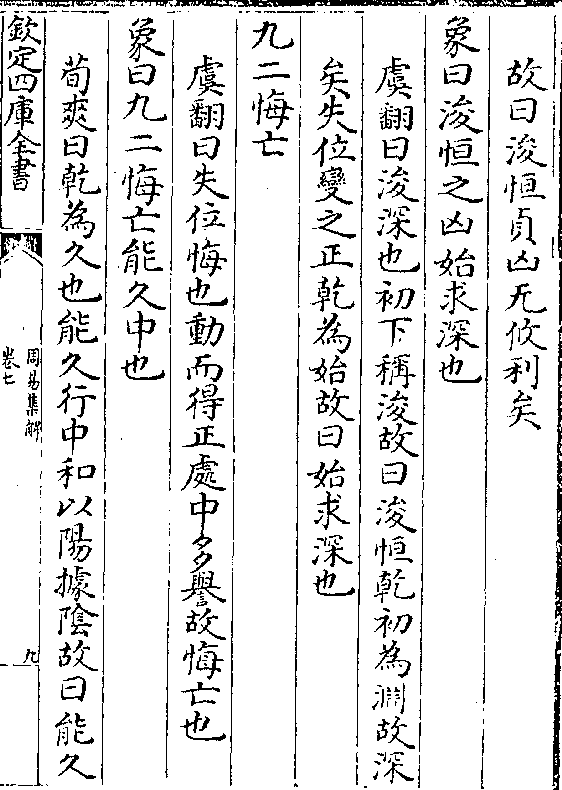 故曰浚恒貞凶无攸利矣
象曰浚恒之凶始求深也
虞翻曰浚深也初下稱浚故曰浚恒乾初為淵故深
矣失位變之正乾為始故曰始求深也
九二悔亡
虞翻曰失位悔也動而得正處中多譽故悔亡也
象曰九二悔亡能久中也
荀爽曰乾為久也能久行中和以陽據陰故曰能久
欽定四庫全書
周易集解
卷七
九